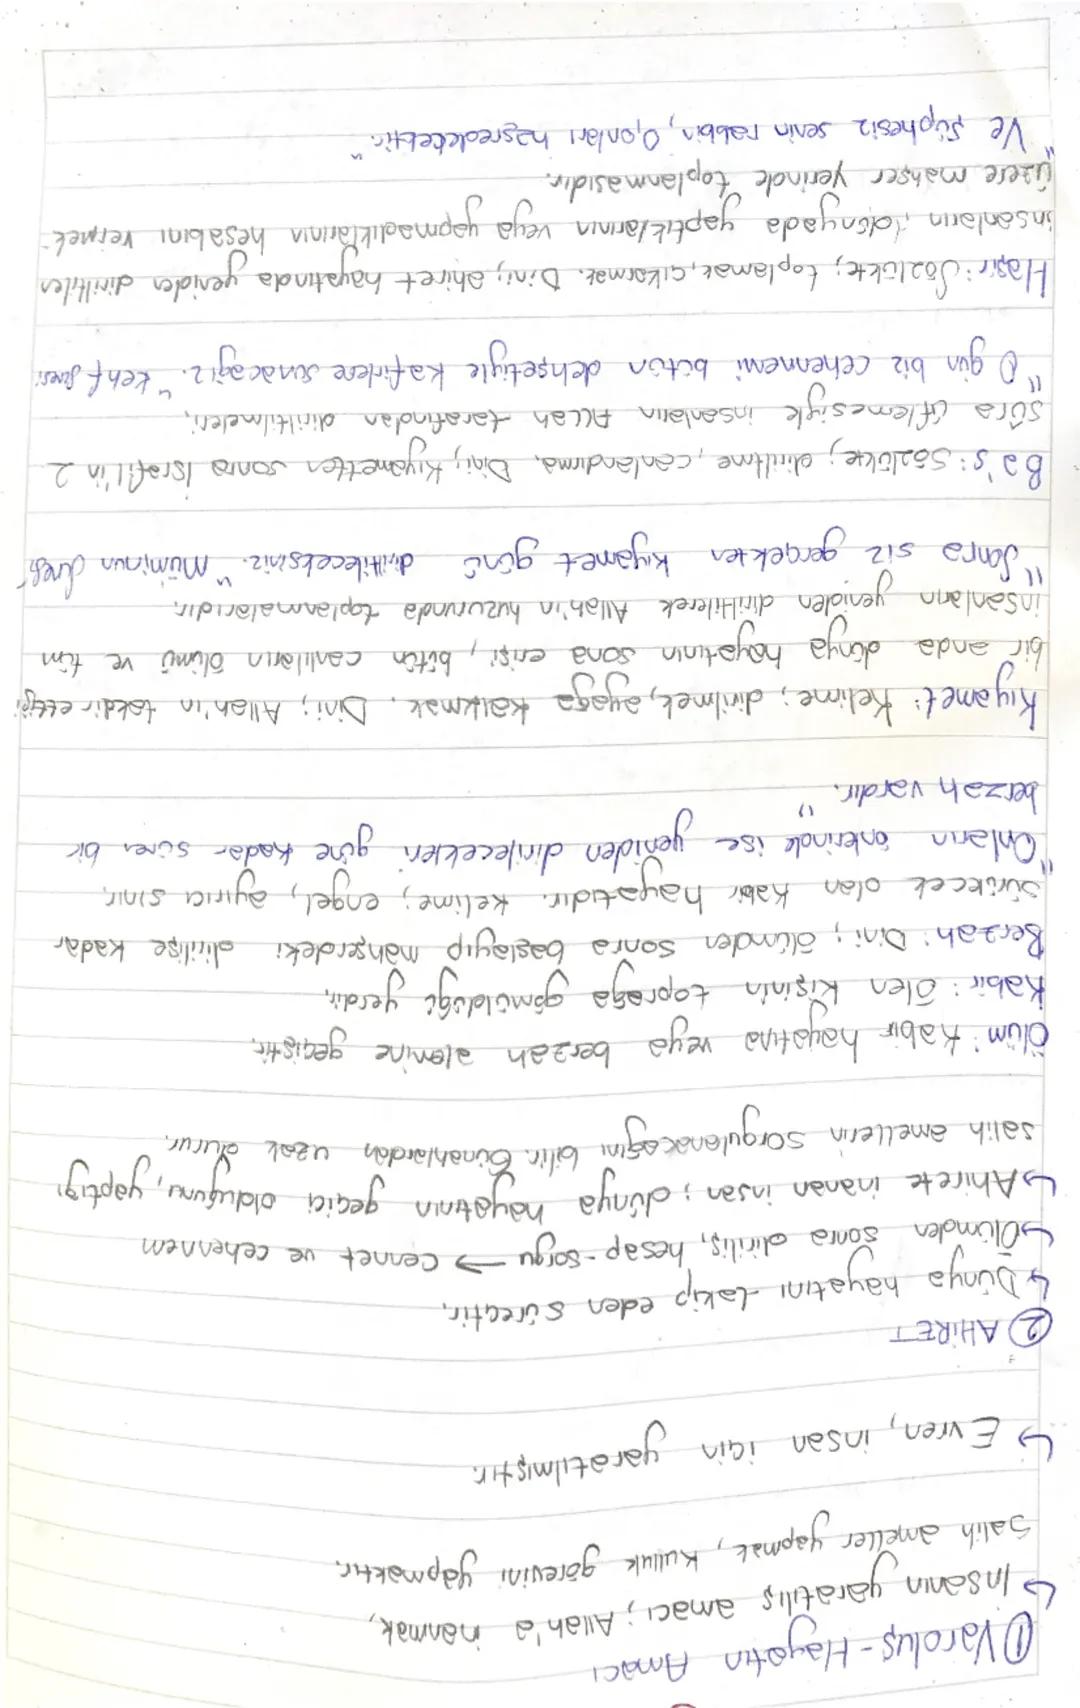 ① Varoluş-Hayatın Amacı
↳ İnsanın yaratılış amacı; Allah'a inanmak,
salih ameller yapmak, kulluk görevini yapmaktır.
↳ Evren, insan için yaratılmıştır.
② AHİRET
↳ Dünya hayatını takip eden süreçtir.
↳ Ölümden sonra diriliş, hesap-sorgu → cennet ve cehennem
↳ Ahirete inanan insan; dünya hayatının geçici olduğunu, yaptığı
salih amellerin sorgulanacağını bilir. Günahlardan uzak durur.
Ölüm: Kabir hayatına veya berzah alemine geçiştir.
Kabir: Ölen kişinin toprağa gömüldüğü yerdir.
Berzah: Dini; ölümden sonra başlayıp mahşerdeki dirilişe kadar
sürülecek olan kabir hayatıdır. Kelime; engel, ayırıcı sınır.
"Onların önlerinde ise yeniden dirilecekleri güne kadar süren bir
berzah vardır."
Kıyamet: Kelime; dirilmek, ayağa kalkmak. Dini; Allah'ın takdir ettiği
bir anda dünya hayatının sona erişi, bütün canlıların ölümü ve tüm
insanların yeniden diriltilerek Allah'ın huzurunda toplanmalarıdır.
"Sonra siz gerçekten kıyamet günü diriltileceksiniz." Müminun suresi
Ba's: Sözlükte; diriltme, canlandırma. Dini; Kıyametten sonra İsrafil'in 2.
sûra üflemesiyle insanların Allah tarafından diriltilmeleri.
"O gün biz cehennemi bütün dehşetiyle kafirlere sunacağız." Kehf suresi
Haşir: Sözlükte; toplamak, çıkarmak. Dini; ahiret hayatında yeniden diriltilen
insanların dünyada yaptıklarının veya yapmadıklarının hesabını vermek
üzere mahşer yerinde toplanmasıdır.
"Ve şüphesiz senin rabbin, O, onları haşredecektir."